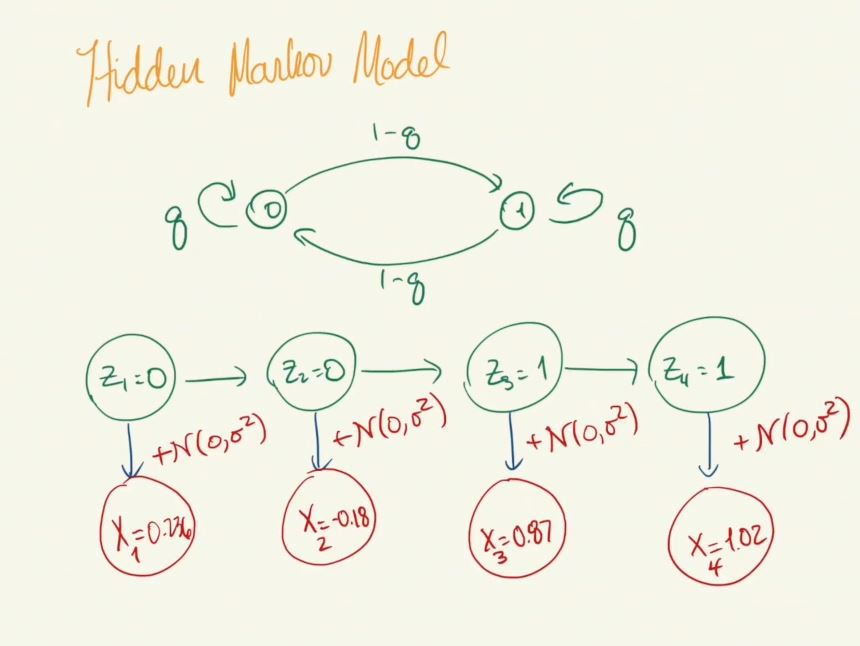 Hidden Markov Model
1-q
q 0 1 q
1-q
Z₁=0 Z₂=0 Z₃=1 Z₄=1
+N(0,σ²) +N(0,σ²) +N(0,σ²) +N(0,σ²)
X₁=0.236 X₂=-0.18 X₃=0.87 X₄=1.02